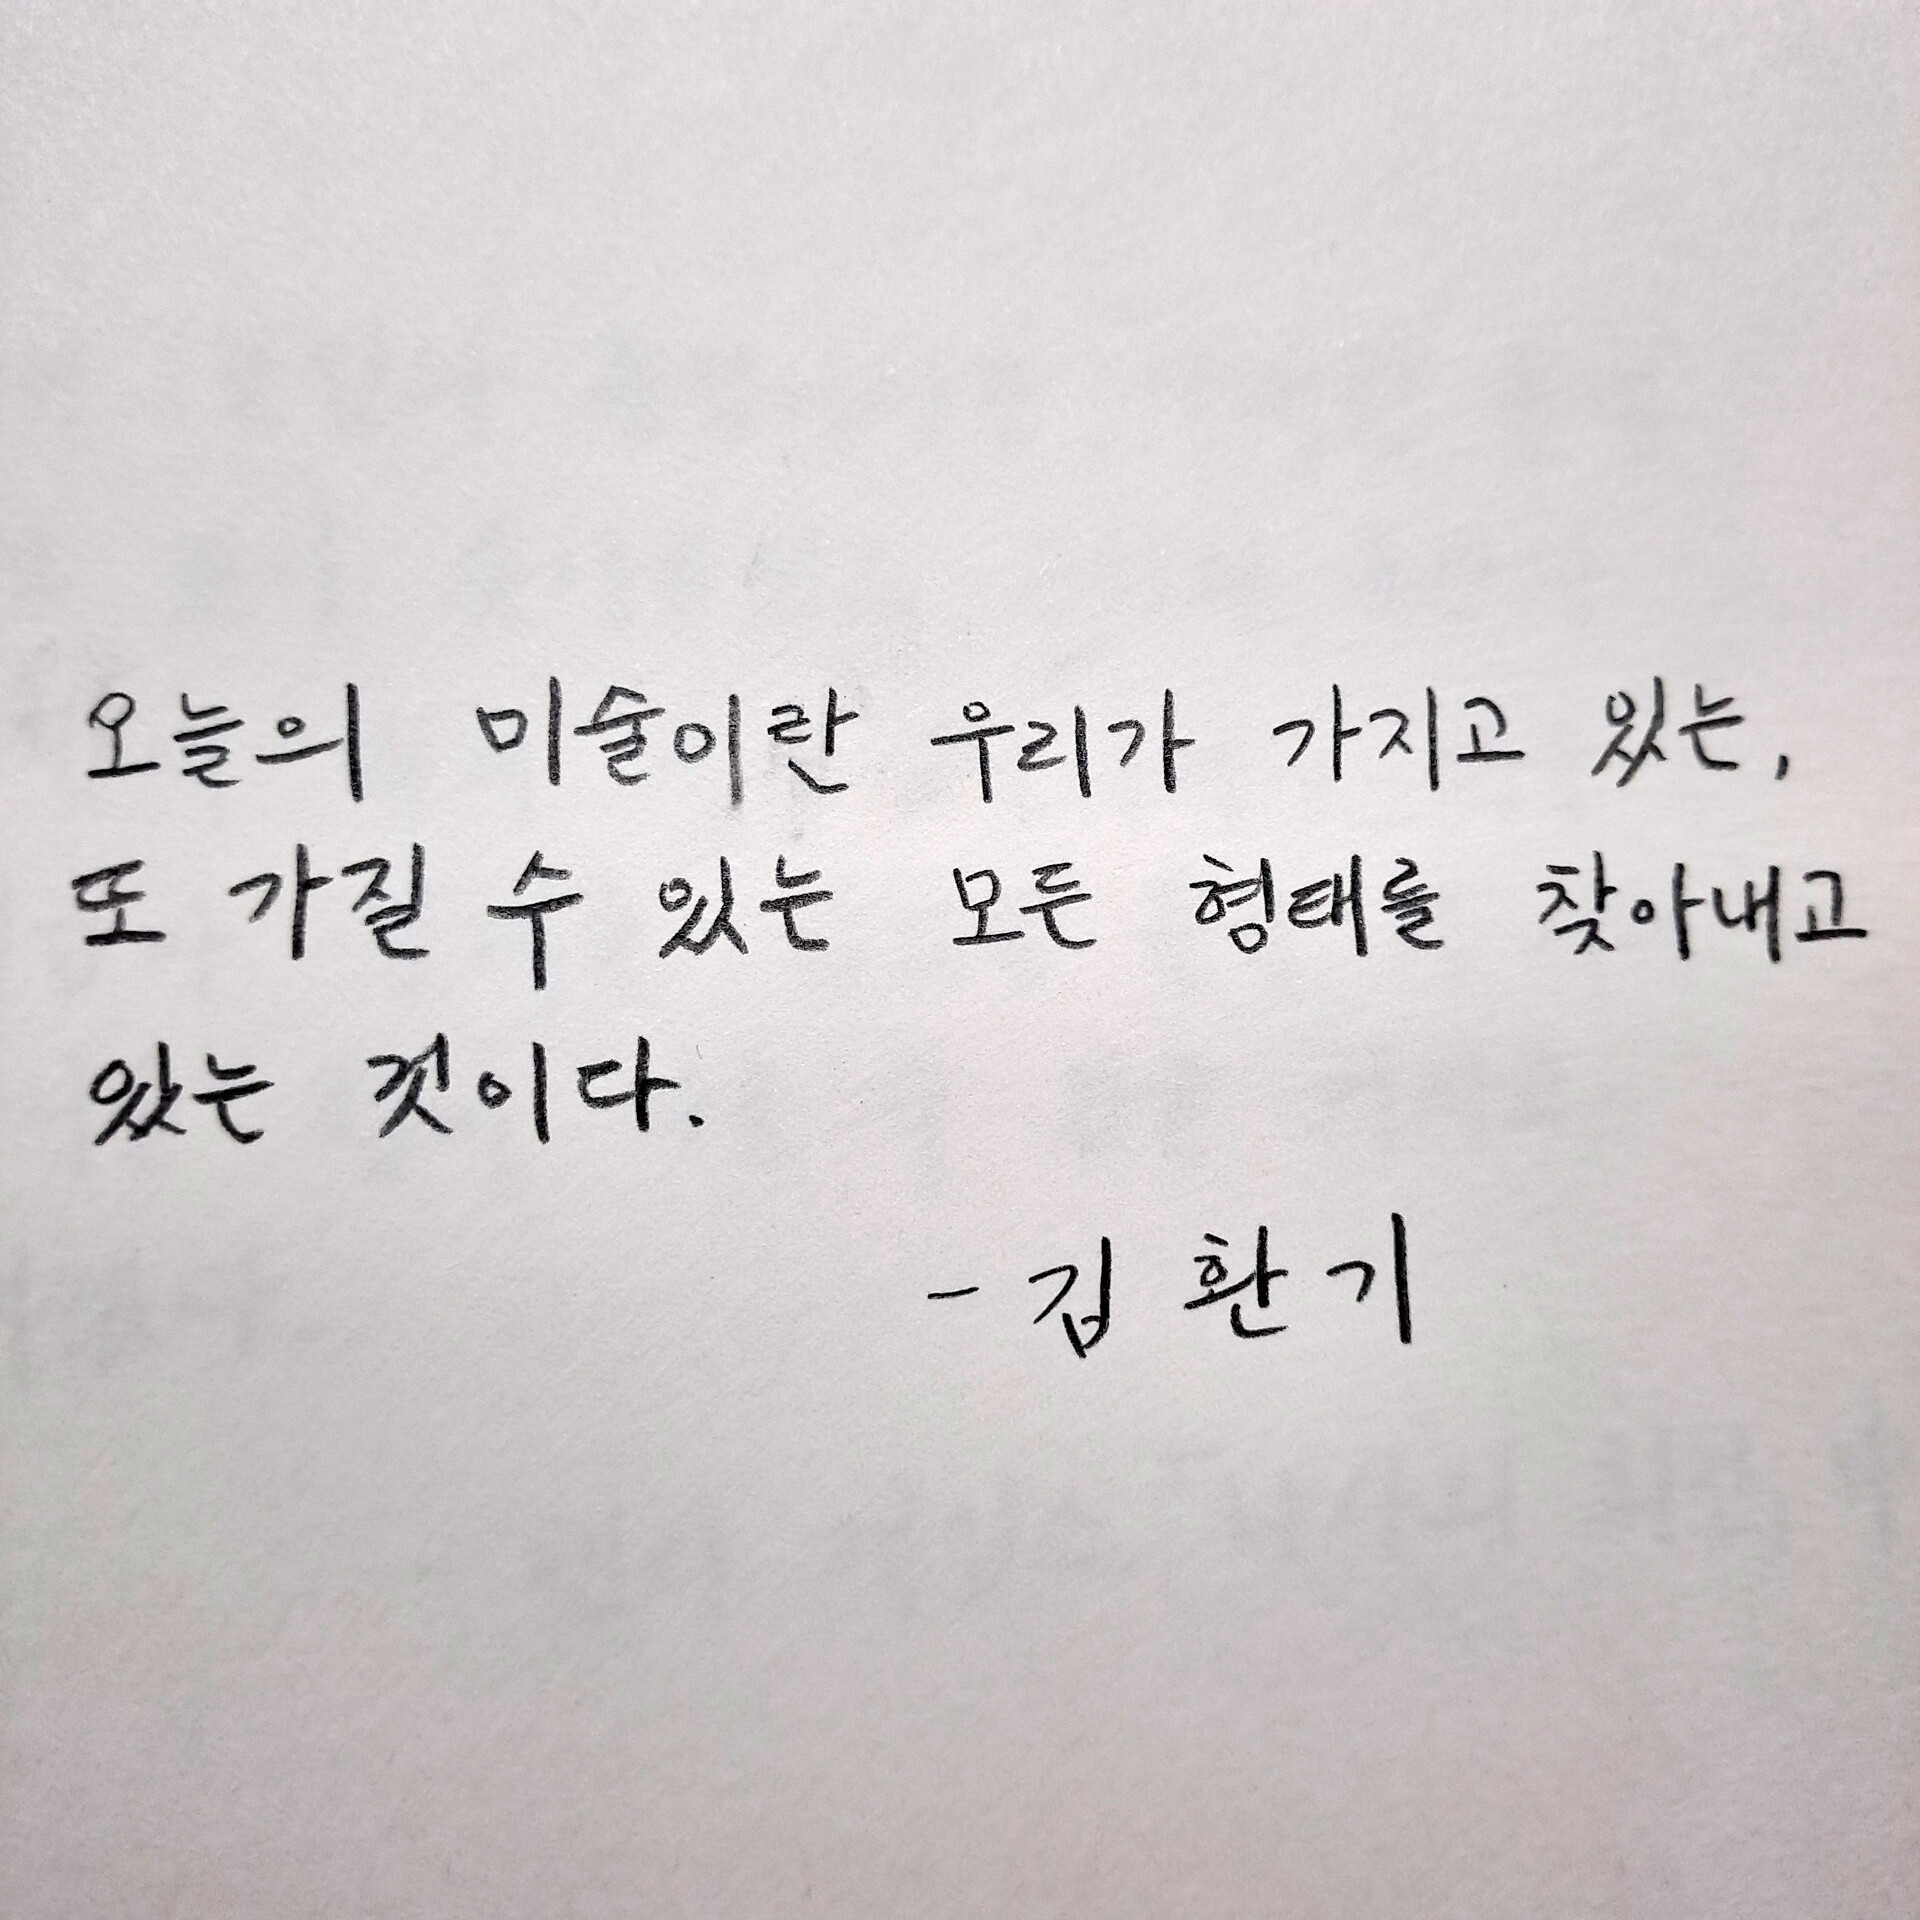 오늘의 미술이란 우리가 가지고 있는,
또 가질 수 있는 모든 형태를 찾아내고
있는 것이다.
- 김환기